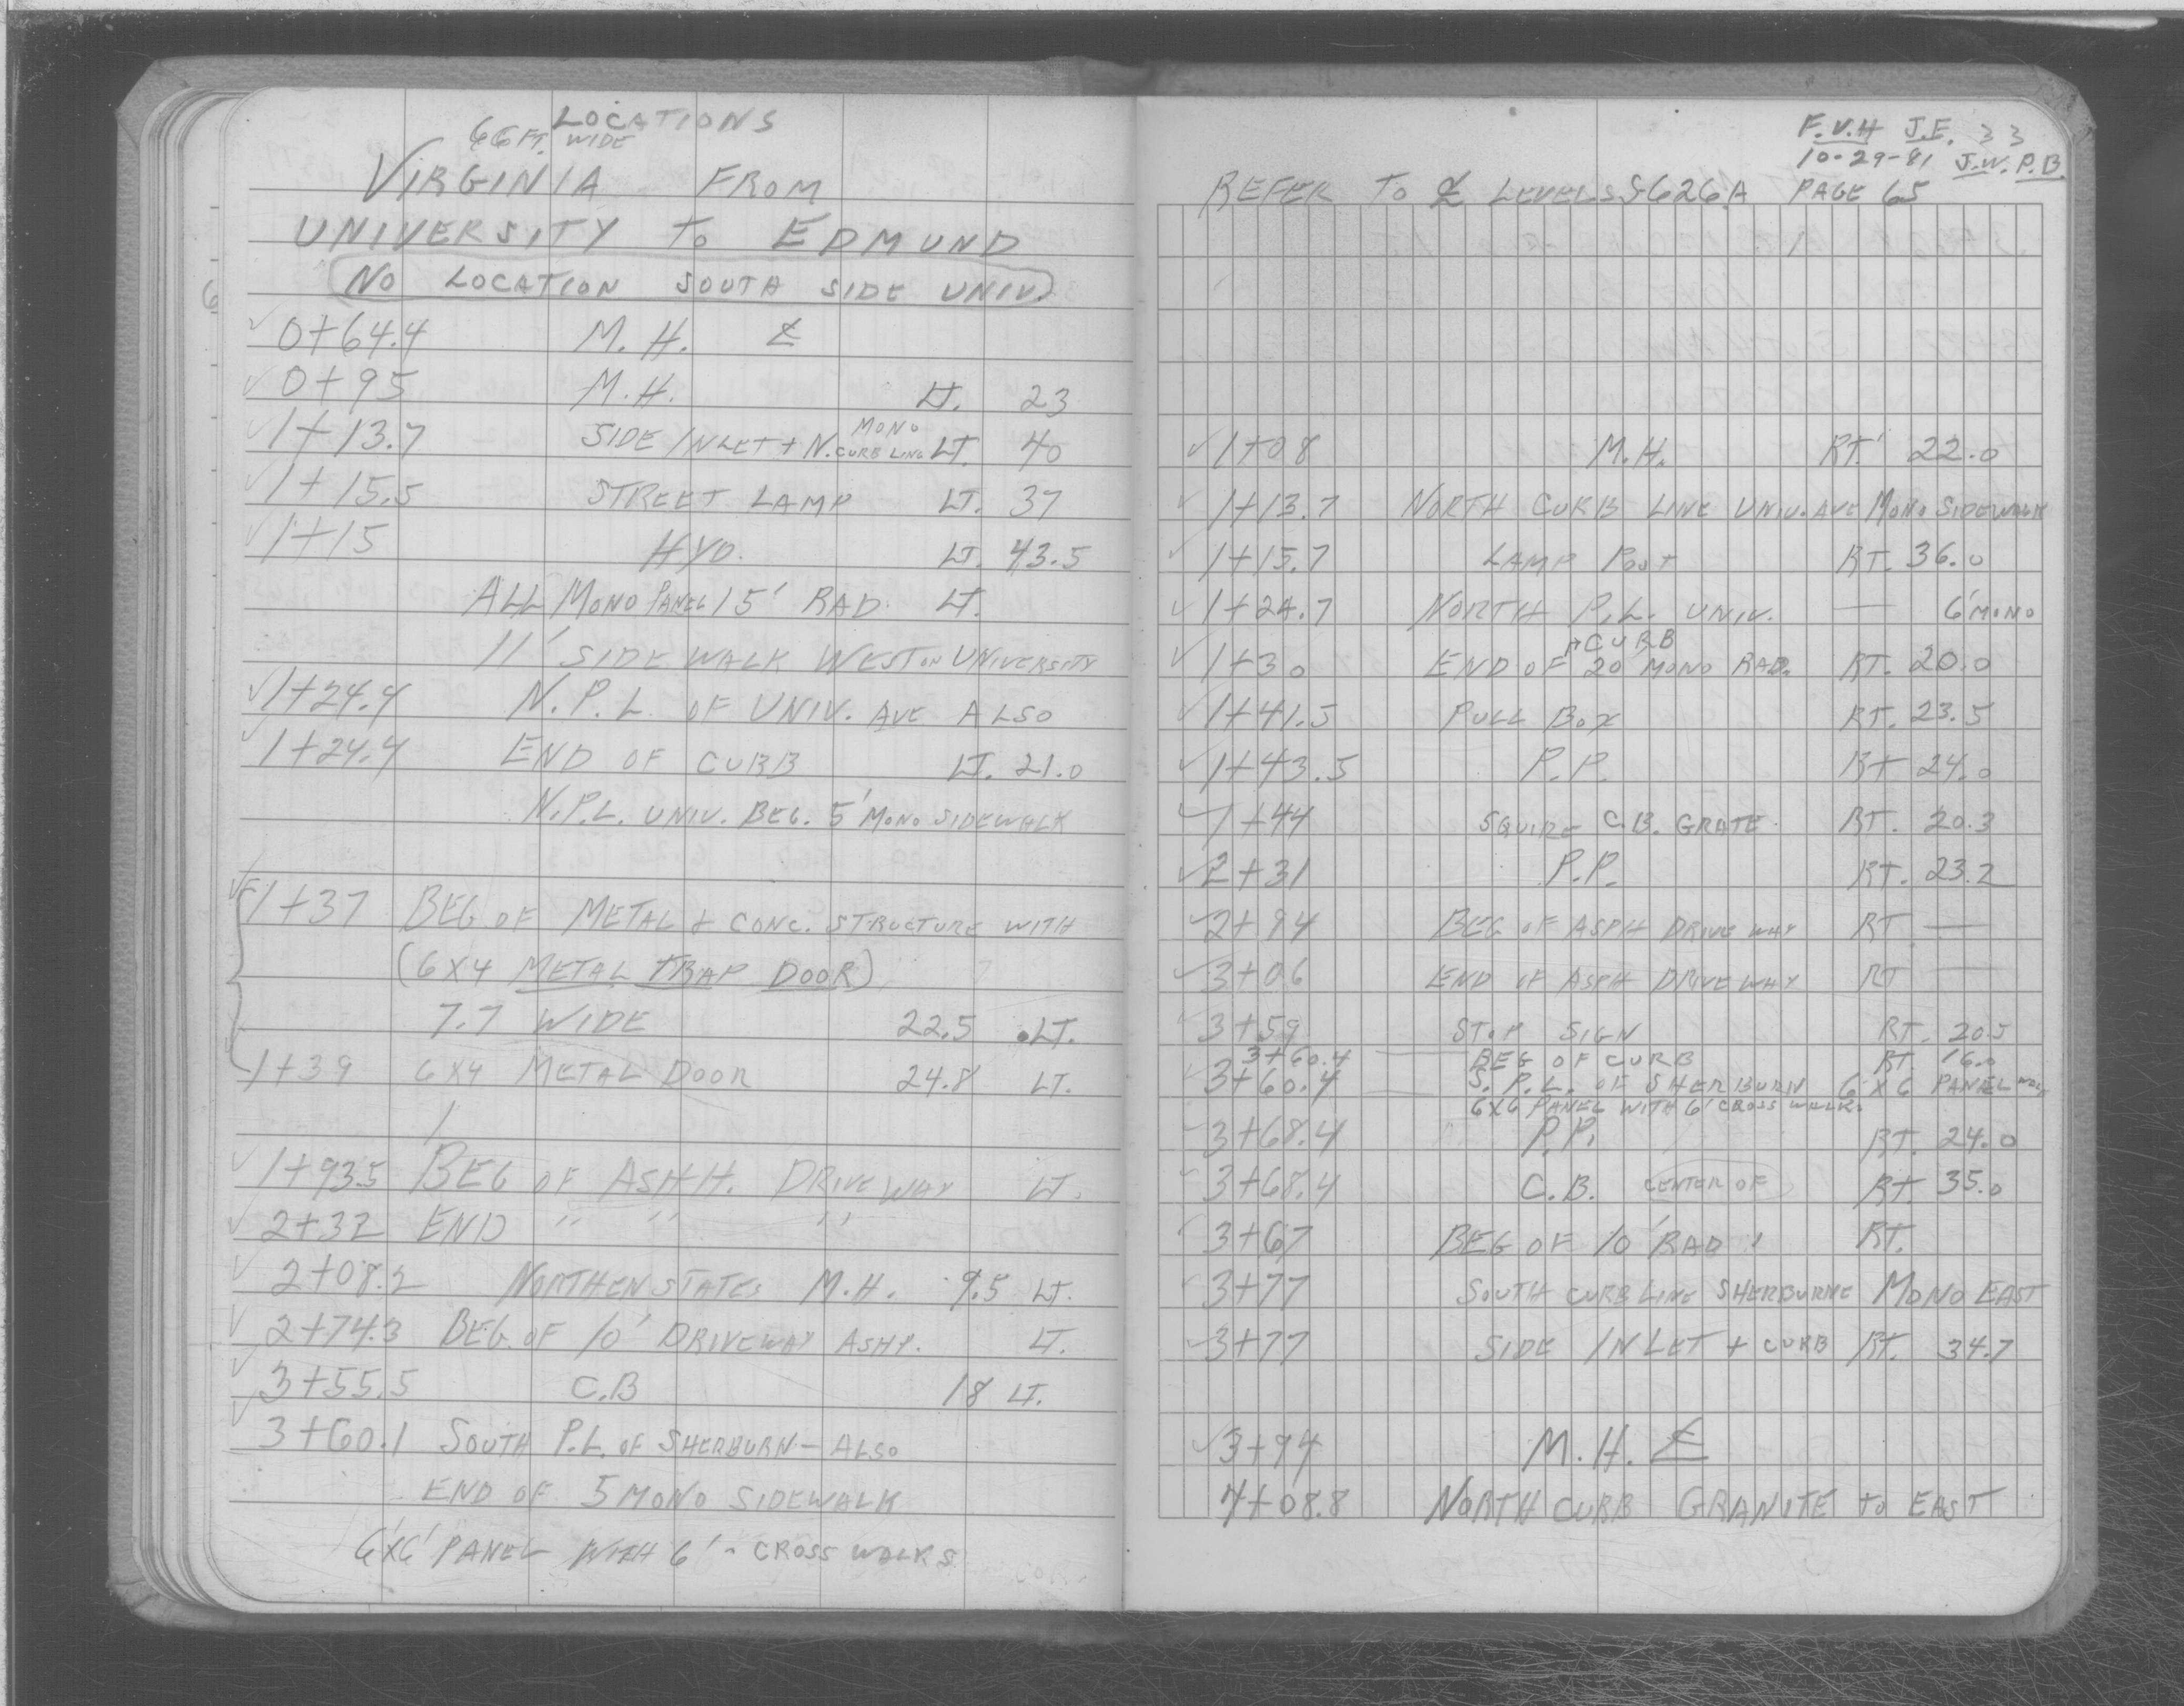 LOCATIONS
66 FT. WIDE
VIRGINIA FROM
UNIVERSITY TO EDMUND
NO LOCATION SOUTH SIDE UNIV.
✓ 0+64.4 M.H. ℄
✓ 0+95 M.H. LT. 23
✓ 1+13.7 SIDE INLET + N. MONO CURB LINE LT. 40
✓ 1+15.5 STREET LAMP LT. 37
✓ 1+15 HYD. LT. 43.5
ALL MONO PANEL 15' RAD. LT.
11' SIDE WALK WEST ON UNIVERSITY
✓ 1+24.4 N.P.L. OF UNIV. AVE ALSO
✓ 1+24.4 END OF CURB LT. 21.0
N.P.L. UNIV. BEG. 5' MONO SIDEWALK
✓ 1+37 BEG OF METAL + CONC. STRUCTURE WITH
(6X4 METAL TRAP DOOR)
7.7 WIDE 22.5 LT.
1+39 6X4 METAL DOOR 24.8 LT.
✓ 1+93.5 BEG OF ASHH. DRIVE WAY LT.
✓ 2+32 END " " "
✓ 2+08.2 NORTHEN STATES M.H. 9.5 LT.
✓ 2+74.3 BEG. OF 10' DRIVEWAY ASHY. LT.
✓ 3+55.5 C.B 18 LT.
✓ 3+60.1 SOUTH P.L. OF SHERBURN - ALSO
END OF 5 MONO SIDEWALK
6'X6' PANEL WITH 6' - CROSS WALKS
F.V.H J.E. 33
10-29-81 J.W. P.B.
REFER TO ℄ LEVELS S626A PAGE 65
✓ 1+08 M.H. RT. 22.0
✓ 1+13.7 NORTH CURB LINE UNIV. AVE MONO SIDEWALK
✓ 1+15.7 LAMP POST RT. 36.0
✓ 1+24.7 NORTH P.L. UNIV. — 6' MONO
CURB
✓ 1+30 END OF 20' MONO RAD. RT. 20.0
✓ 1+41.5 PULL BOX RT. 23.5
✓ 1+43.5 P.P. RT 24.0
✓ 1+44 SQUIRE C.B. GRATE RT. 20.3
✓ 2+31 P.P. RT. 23.2
✓ 2+94 BEG OF ASPH DRIVE WAY RT —
✓ 3+06 END OF ASPH DRIVE WAY RT —
✓ 3+59 STOP SIGN RT. 20.5
3+60.4 — BEG OF CURB RT. 16.0
✓ 3+60.4 — S. P.L. OF SHERBURN 6'X6 PANEL
6X6 PANEL WITH 6' CROSS WALK.
✓ 3+68.4 P.P. RT. 24.0
✓ 3+68.4 C.B. CENTER OF RT. 35.0
✓ 3+67 BEG OF 10' RAD. RT.
✓ 3+77 SOUTH CURB LINE SHERBURNE MONO EAST
✓ 3+77 SIDE INLET + CURB RT. 34.7
✓ 3+94 M.H. ℄
4+08.8 NORTH CURB GRANITE TO EAST